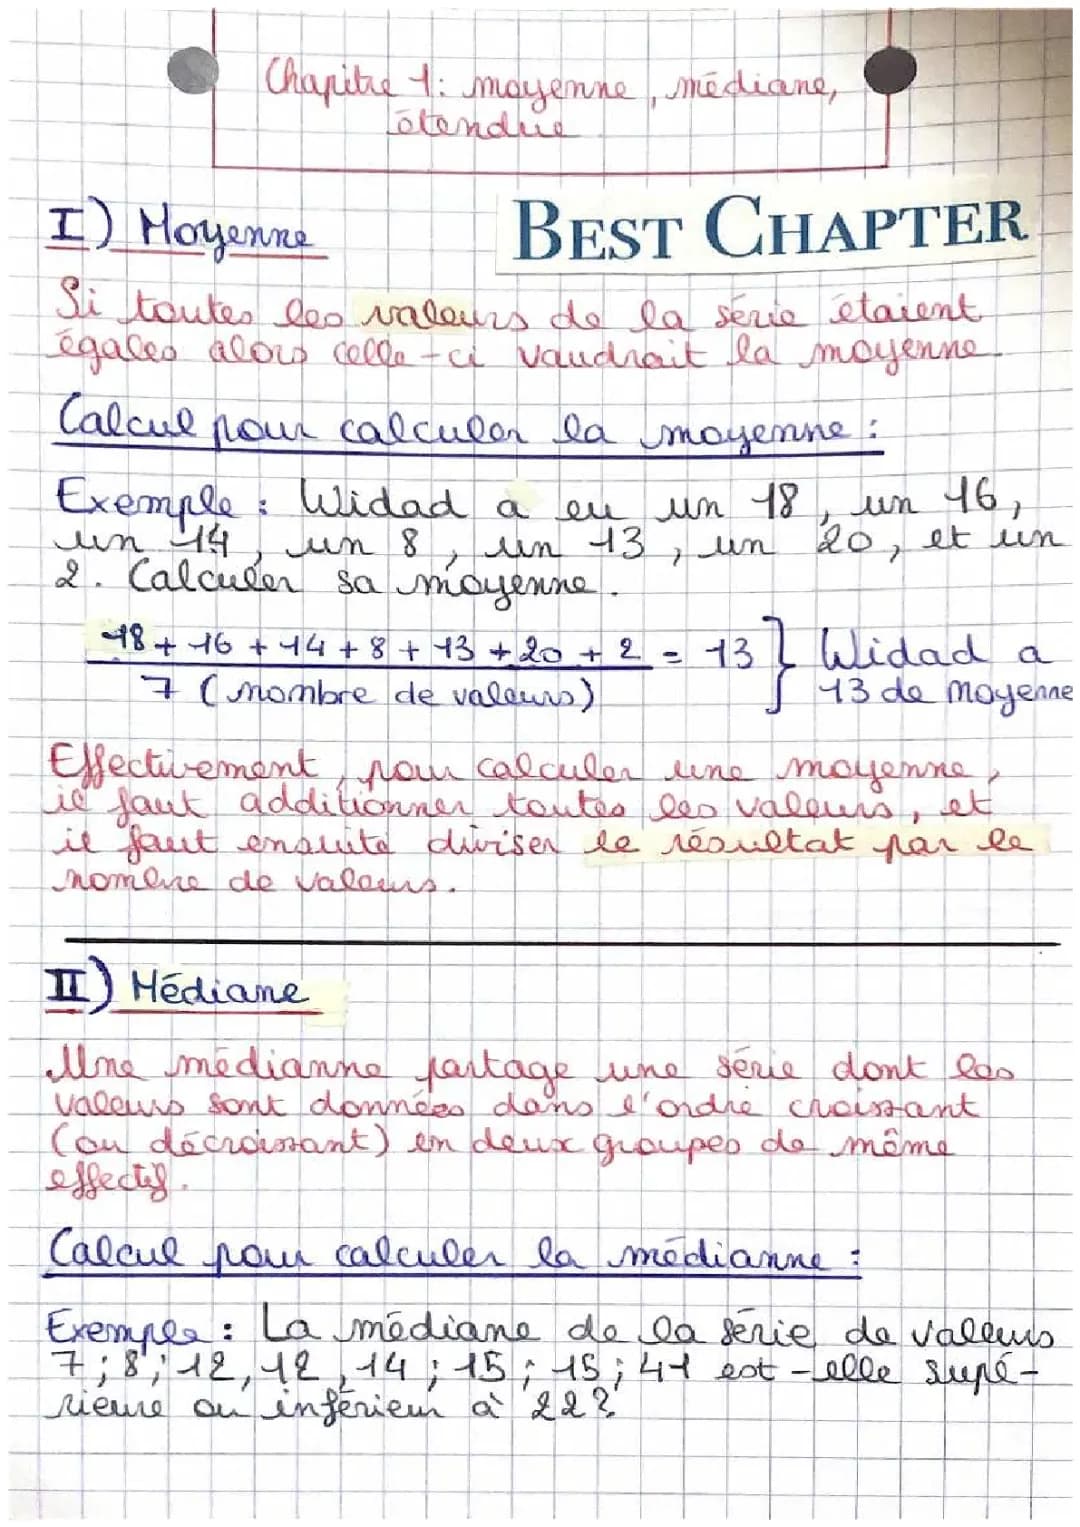 Chapitre 1: moyenne, médiane,
étendue
I) Moyenne
BEST CHAPTER
Si toutes les valeurs de la série étaient
égales alors celle-ci vaudrait la moyenne.
Calcul pour calculer la moyenne :
Exemple : Widad a eu un 18, un 16,
un 14, un 8, un 13, un 20, et un
2. Calculer sa moyenne.
18 + 16 + 14 + 8 + 13 + 20 + 2 = 13 } Widad a
7 (nombre de valeurs) 13 de moyenne
Effectivement, pour calculer une moyenne,
il faut additionner toutes les valeurs, et
il faut ensuite diviser le résultat par le
nombre de valeurs.
II) Médiane
Une médianne partage une série dont les
valeurs sont données dans l'ordre croissant
(ou décroissant) en deux groupes de même
effectif.
Calcul pour calculer la médianne :
Exemple : La médiane de la série de valeurs
7 ; 8 ; 12, 12, 14 ; 15 ; 15 ; 41 est-elle supé-
rieure ou inférieur à 22?